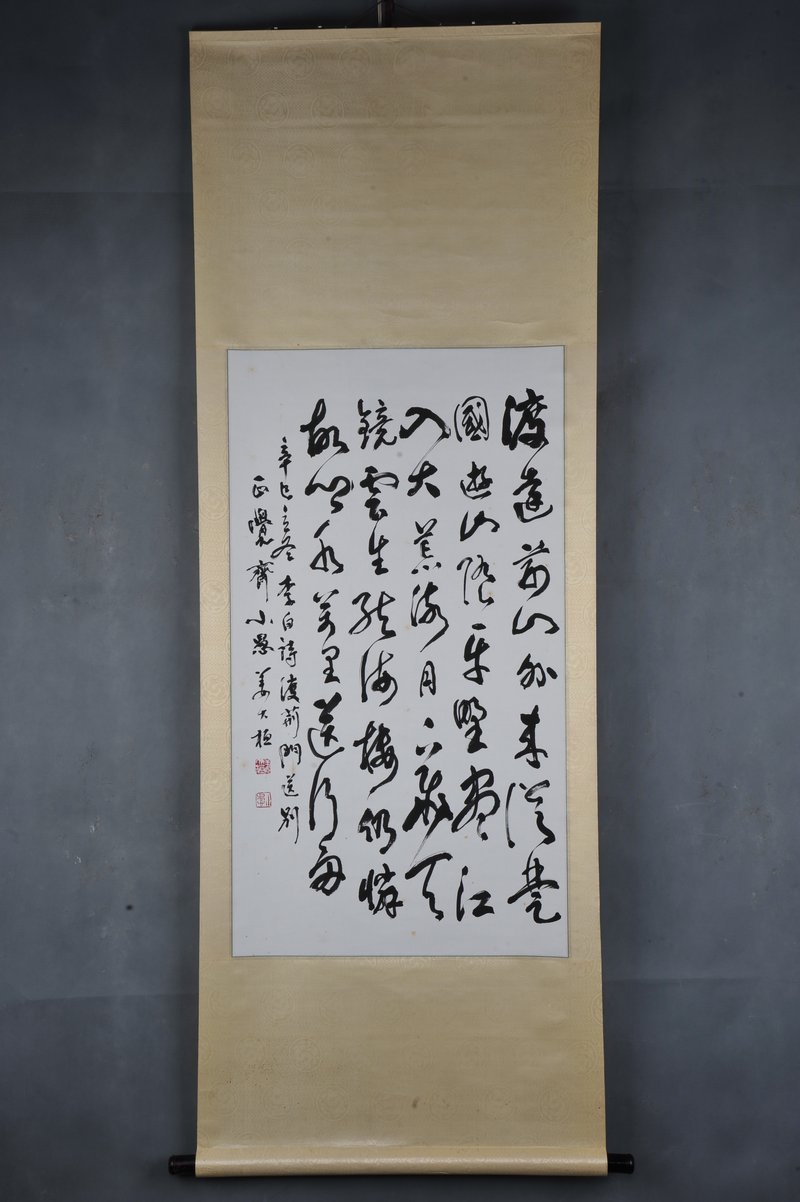 渡遠荊門外来從楚
國遊山随平野盡江
入大荒流月下飛天
鏡雲生結海樓仍憐
故鄉水萬里送行舟
辛巳立冬李白詩渡荊門送别
正覺齋小愚姜大